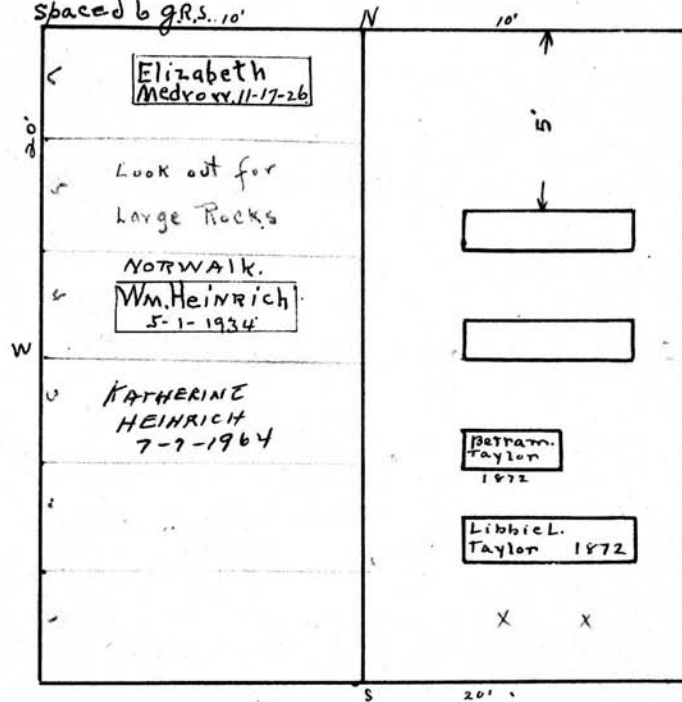 spaced 6 g.R.S. 10'
N
10'
Elizabeth
Medrow. 11-17-26
20'
5'
Look out for
Large Rocks
NORWALK.
Wm. HeiNRich
5-1-1934
W
KATHERINE
HEINRICH
7-7-1964
Betram.
Taylor
1872
Libbie L.
Taylor 1872
X X
S
20'